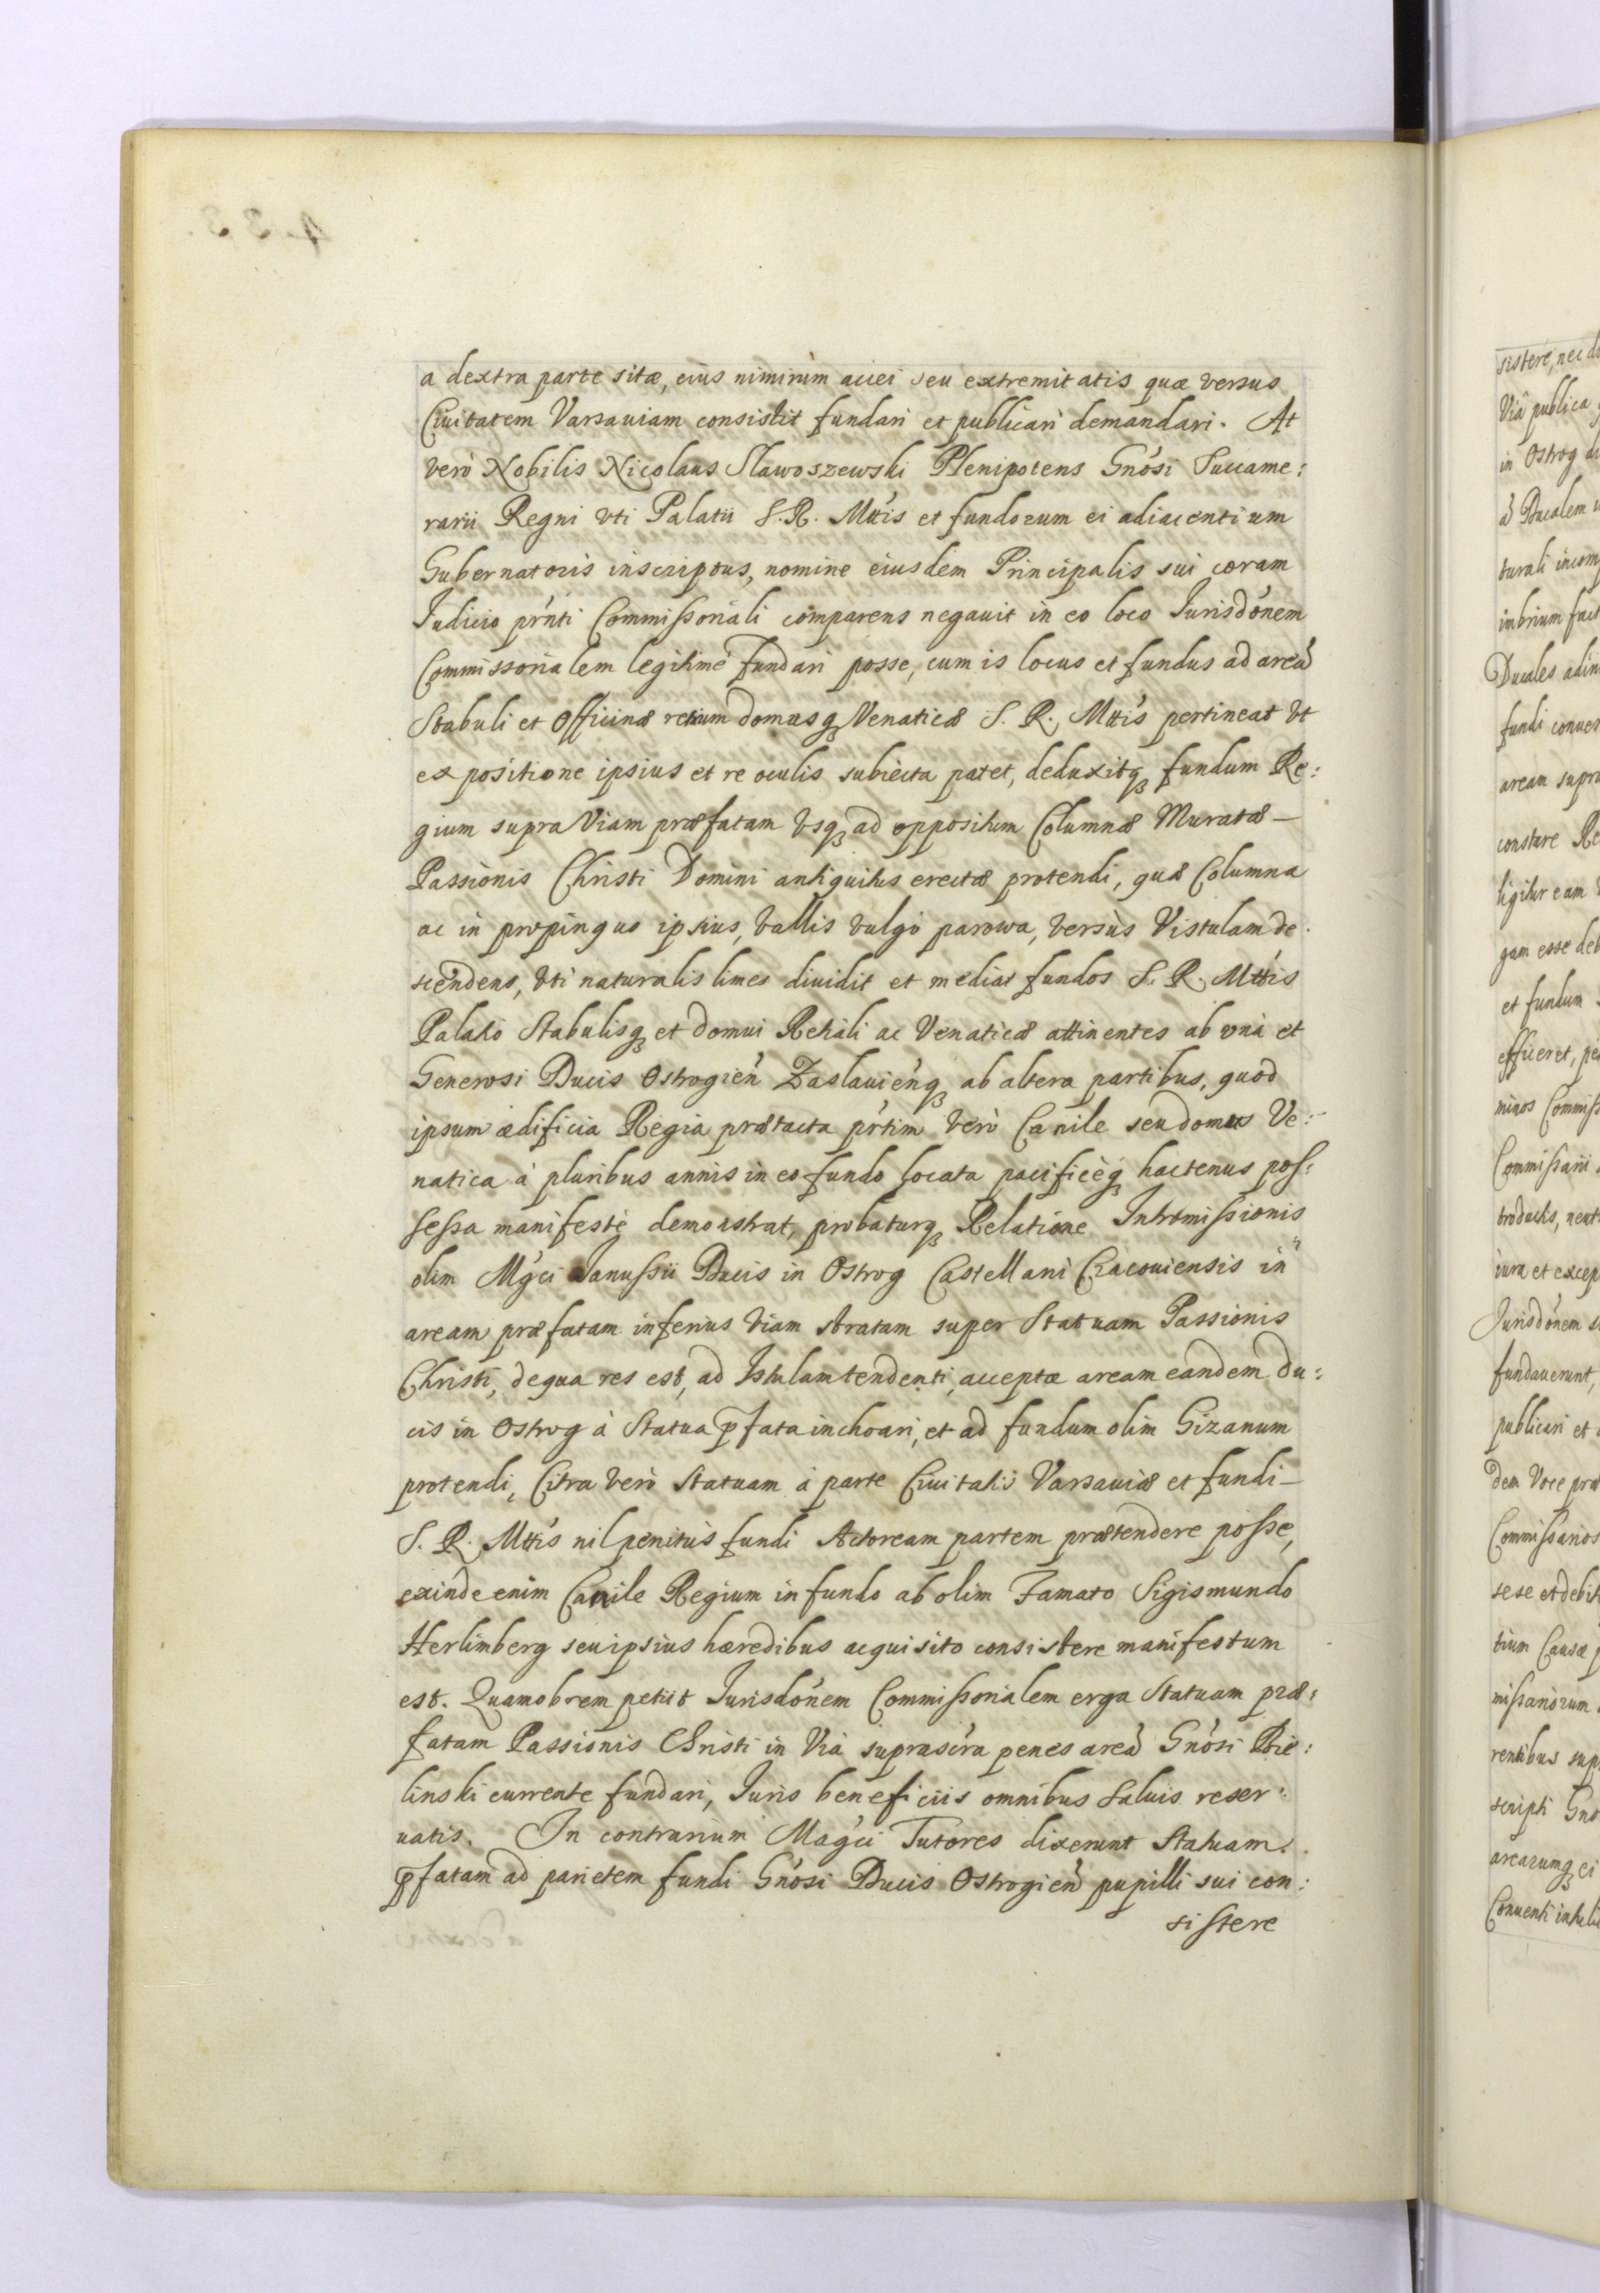 a dextra parte sitæ, eius nimirùm aciei seu extremitatis quæ versus
Ciuitatem Varsauiam consistit fundari et publicari demandari. At
verò Nobilis Nicolaus Sławoszewski Plenipotens Gnósi Succame:
rarii Regni vti Palatii S. R. Mttis et fundorum ei adiacentium
Gubernatoris inscriptus, nomine eiusdem Principalis sui coram
Iudicio prńti Commissoriali comparens negauit in eo loco Iurisdónem
Commissorialem legitimé fundari posse, cum is locus et fundus ad areā
Stabuli et Officinæ retium domusq₃ Venaticæ S. R. Mttis pertineat vt
ex positione ipsius et re oculis subiecta patet, deduxitq₃ fundum Re:
gium supra Viam præfatam vsq₃ ad oppositum Columnæ Muratæ –
Passionis Christi Domini antiquitus erectæ protendi, quæ Columna
ac in propinquo ipsius, vallis vulgo parowa, versùs Vistulam de
scendens, vti naturalis limes diuidit et mediat fundos S. R. Mttis
Palatio Stabulisq₃ et domui Retiali ac Venaticæ attinentes ab vnà et
Generosi Ducis Ostrogień Zaslauieńq₃ ab altera partibus, quod
ipsum ædificia Regia prætacta prtim verò Canile seu domus Ve:
natica à pluribus annis in eo fundo locata pacificèq₃ hactenus pos:
sessa manifestè demonstrat, probaturq₃ Relatione Intromissionis
olim Mǵci Ianussii Ducis in Ostrog Castellani Cracouiensis in
aream præfatam inferius viam stratam super Statuam Passionis
Christi, de qua res est, ad Istulam tendenti, acceptæ aream eandem du:
cis in Ostrog à Statua p̄fata inchoari, et ad fundum olim Gizanum
protendi, Citra verò Statuam à parte Ciuitatis Varsauiæ et fundi –
S. R. Mttis nil penitùs fundi Actoream partem prætendere posse,
exinde enim Canile Regium in fundo ab olim Famato Sigismundo
Herlimberg seu ipsius hæredibus acquisito consistere manifestum
est. Quamobrem petiit Iurisdónem Commissorialem erga Statuam præ:
fatam Passionis Christi in Via suprascra penes areā Gnósi Bie:
linski currente fundari, Iuris beneficiis omnibus saluis reser:
uatis. In contrarium Magci Tutores dixerunt Statuam
p̄fatam ad parietem fundi Gnósi Ducis Ostrogień pupilli sui con:
sistere